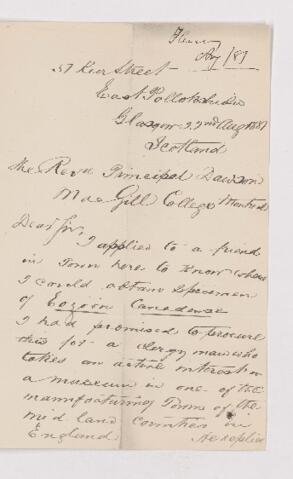 Aug/87
37 Keir Street
East Pollokshields
Glasgow 22nd Aug 1887
Scotland
The Revd Principal Dawson
MacGill College Montreal
Dear Sir,
I applied to a friend
in Town here to know where
I could obtain specimen
of Eozoon Canadense
I had promised to procure
this for a clergyman who
takes an active interest in
a museum in one of the
manufacturing Towns of the
mid land Counties in
England.
He replies